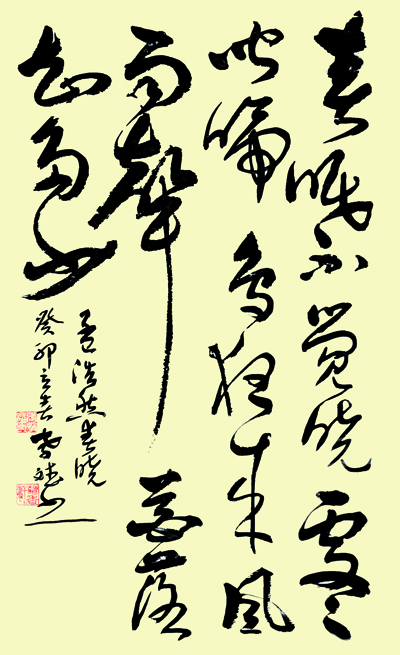 春眠不觉晓处々
闻啼鸟夜来风
雨聲花落
知多少
孟浩然春晓
癸卯立春